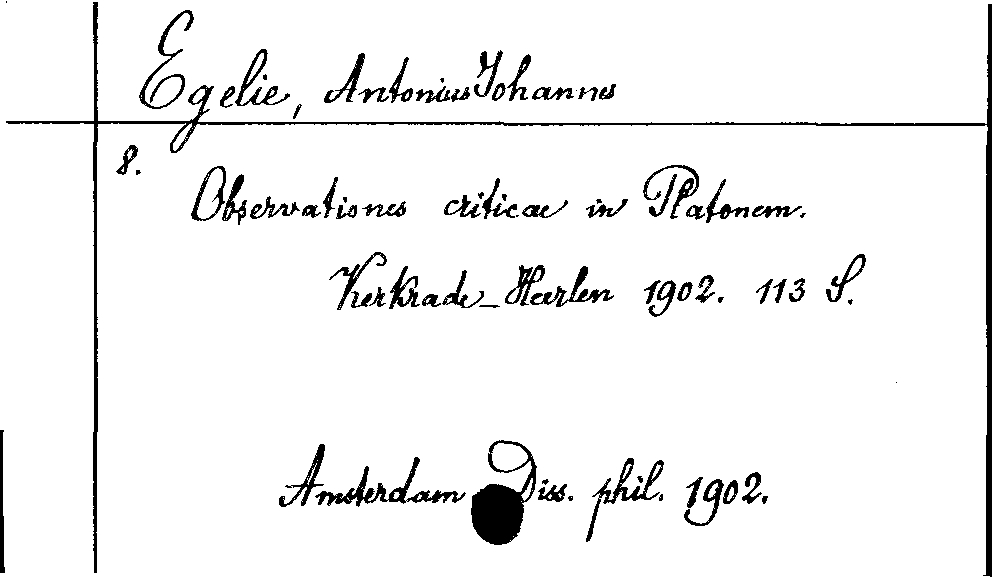 Egelie, Antonius Johannes
8.
Observationes criticae in Platonem.
Kerkrade-Heerlen 1902. 113 S.
Amsterdam, Diss. phil. 1902.